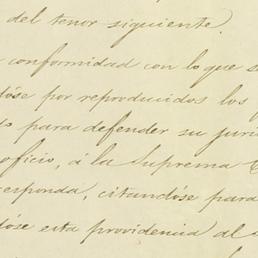 del tenor siguiente.
conformidad con lo que s
dóse por reproducidos los
para defender su juri
oficio, á la Suprema
responda, citandose para
dóse esta providencia al